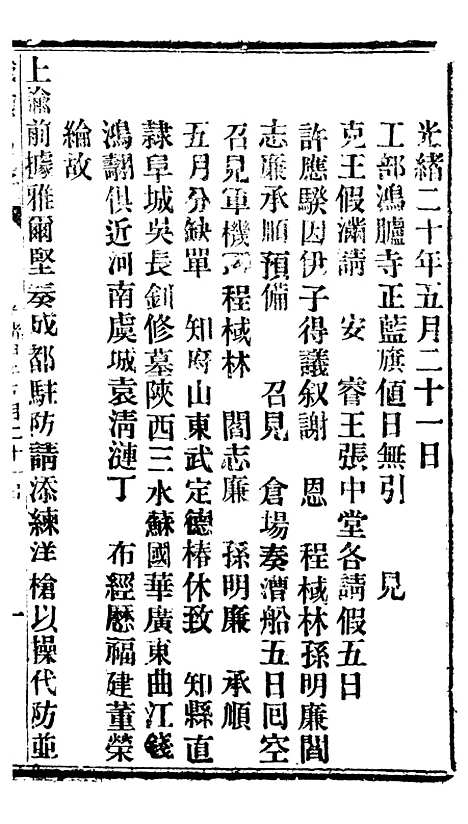 光緒二十年五月二十一日
工部鴻臚寺正藍旗値日無引　見
克王假滿請　安　睿王張中堂各請假五日
許應騤因伊子得議叙謝　恩　程棫林孫明廉閻
志廉承順預備　召見　倉場奏漕船五日囘空
召見軍機　程棫林　閻志廉　孫明廉　承順
五月分缺單　知府山東武定德椿休致　知縣直
隸阜城吳長釗修墓陝西三水蘇國華廣東曲江錢
鴻翽俱近河南虞城袁淸漣丁　布經歴福建董榮
綸故
上諭前據雅爾堅奏成都駐防請添練洋槍以操代防並